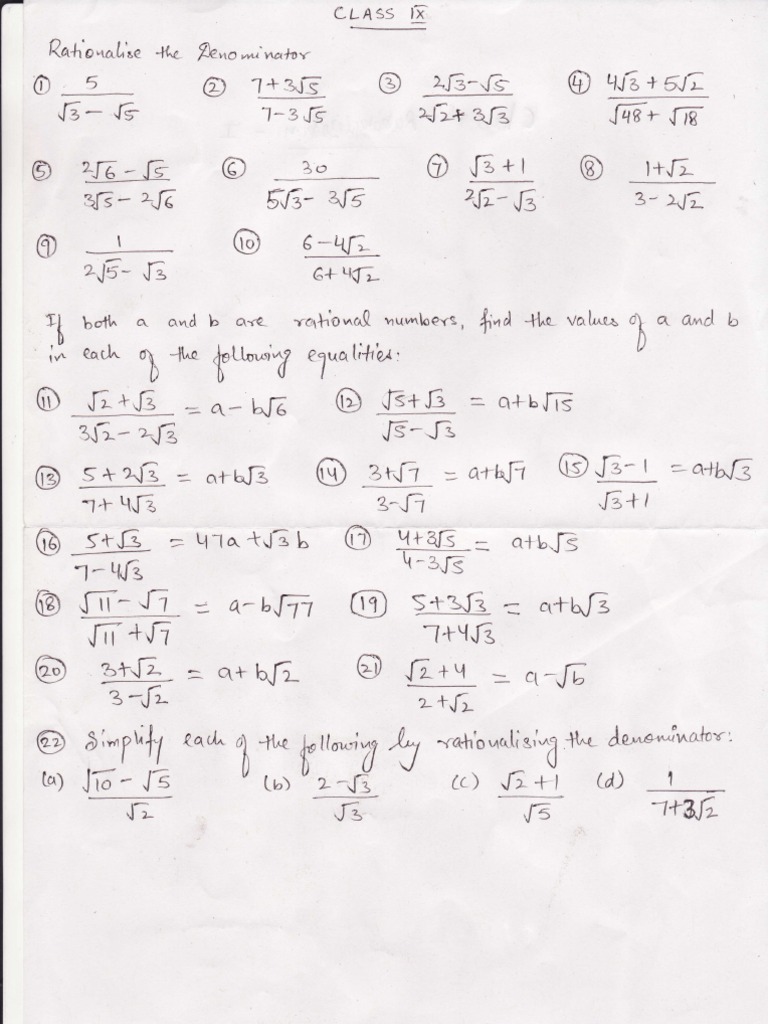 CLASS IX
Rationalise the Denominator
① 5/(√3 − √5) ② (7+3√5)/(7−3√5) ③ (2√3−√5)/(2√2+3√3) ④ (4√3+5√2)/(√48+√18)
⑤ (2√6−√5)/(3√5−2√6) ⑥ 30/(5√3−3√5) ⑦ (√3+1)/(2√2−√3) ⑧ (1+√2)/(3−2√2)
⑨ 1/(2√5−√3) ⑩ (6−4√2)/(6+4√2)
If both a and b are rational numbers, find the values of a and b
in each of the following equalities:
⑪ (√2+√3)/(3√2−2√3) = a−b√6 ⑫ (√5+√3)/(√5−√3) = a+b√15
⑬ (5+2√3)/(7+4√3) = a+b√3 ⑭ (3+√7)/(3−√7) = a+b√7 ⑮ (√3−1)/(√3+1) = a+b√3
⑯ (5+√3)/(7−4√3) = 47a+√3b ⑰ (4+3√5)/(4−3√5) = a+b√5
⑱ (√11−√7)/(√11+√7) = a−b√77 ⑲ (5+3√3)/(7+4√3) = a+b√3
⑳ (3+√2)/(3−√2) = a+b√2 ㉑ (√2+4)/(2+√2) = a−√b
㉒ Simplify each of the following by rationalising the denominator:
(a) (√10−√5)/√2 (b) (2−√3)/√3 (c) (√2+1)/√5 (d) 1/(7+3√2)